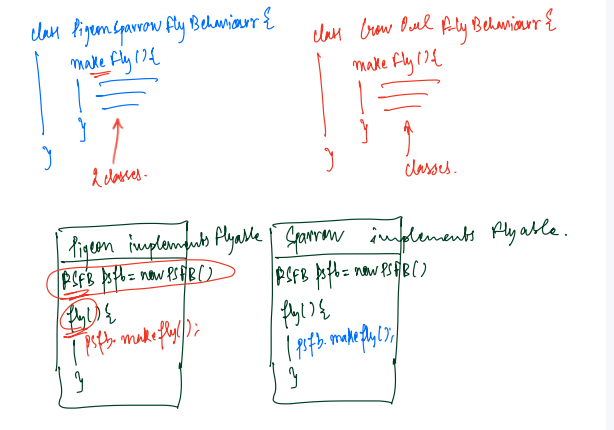 class PigeonSparrowFlyBehaviour {
makeFly() {
}
}
2 classes.
class Crow Owl Fly Behaviour {
makeFly() {
}
}
classes.
Pigeon implements Flyable
PSFB psfb = new PSFB()
fly() {
psfb.makefly();
}
Sparrow implements Flyable.
PSFB psfb = new PSFB()
fly() {
psfb.makefly();
}